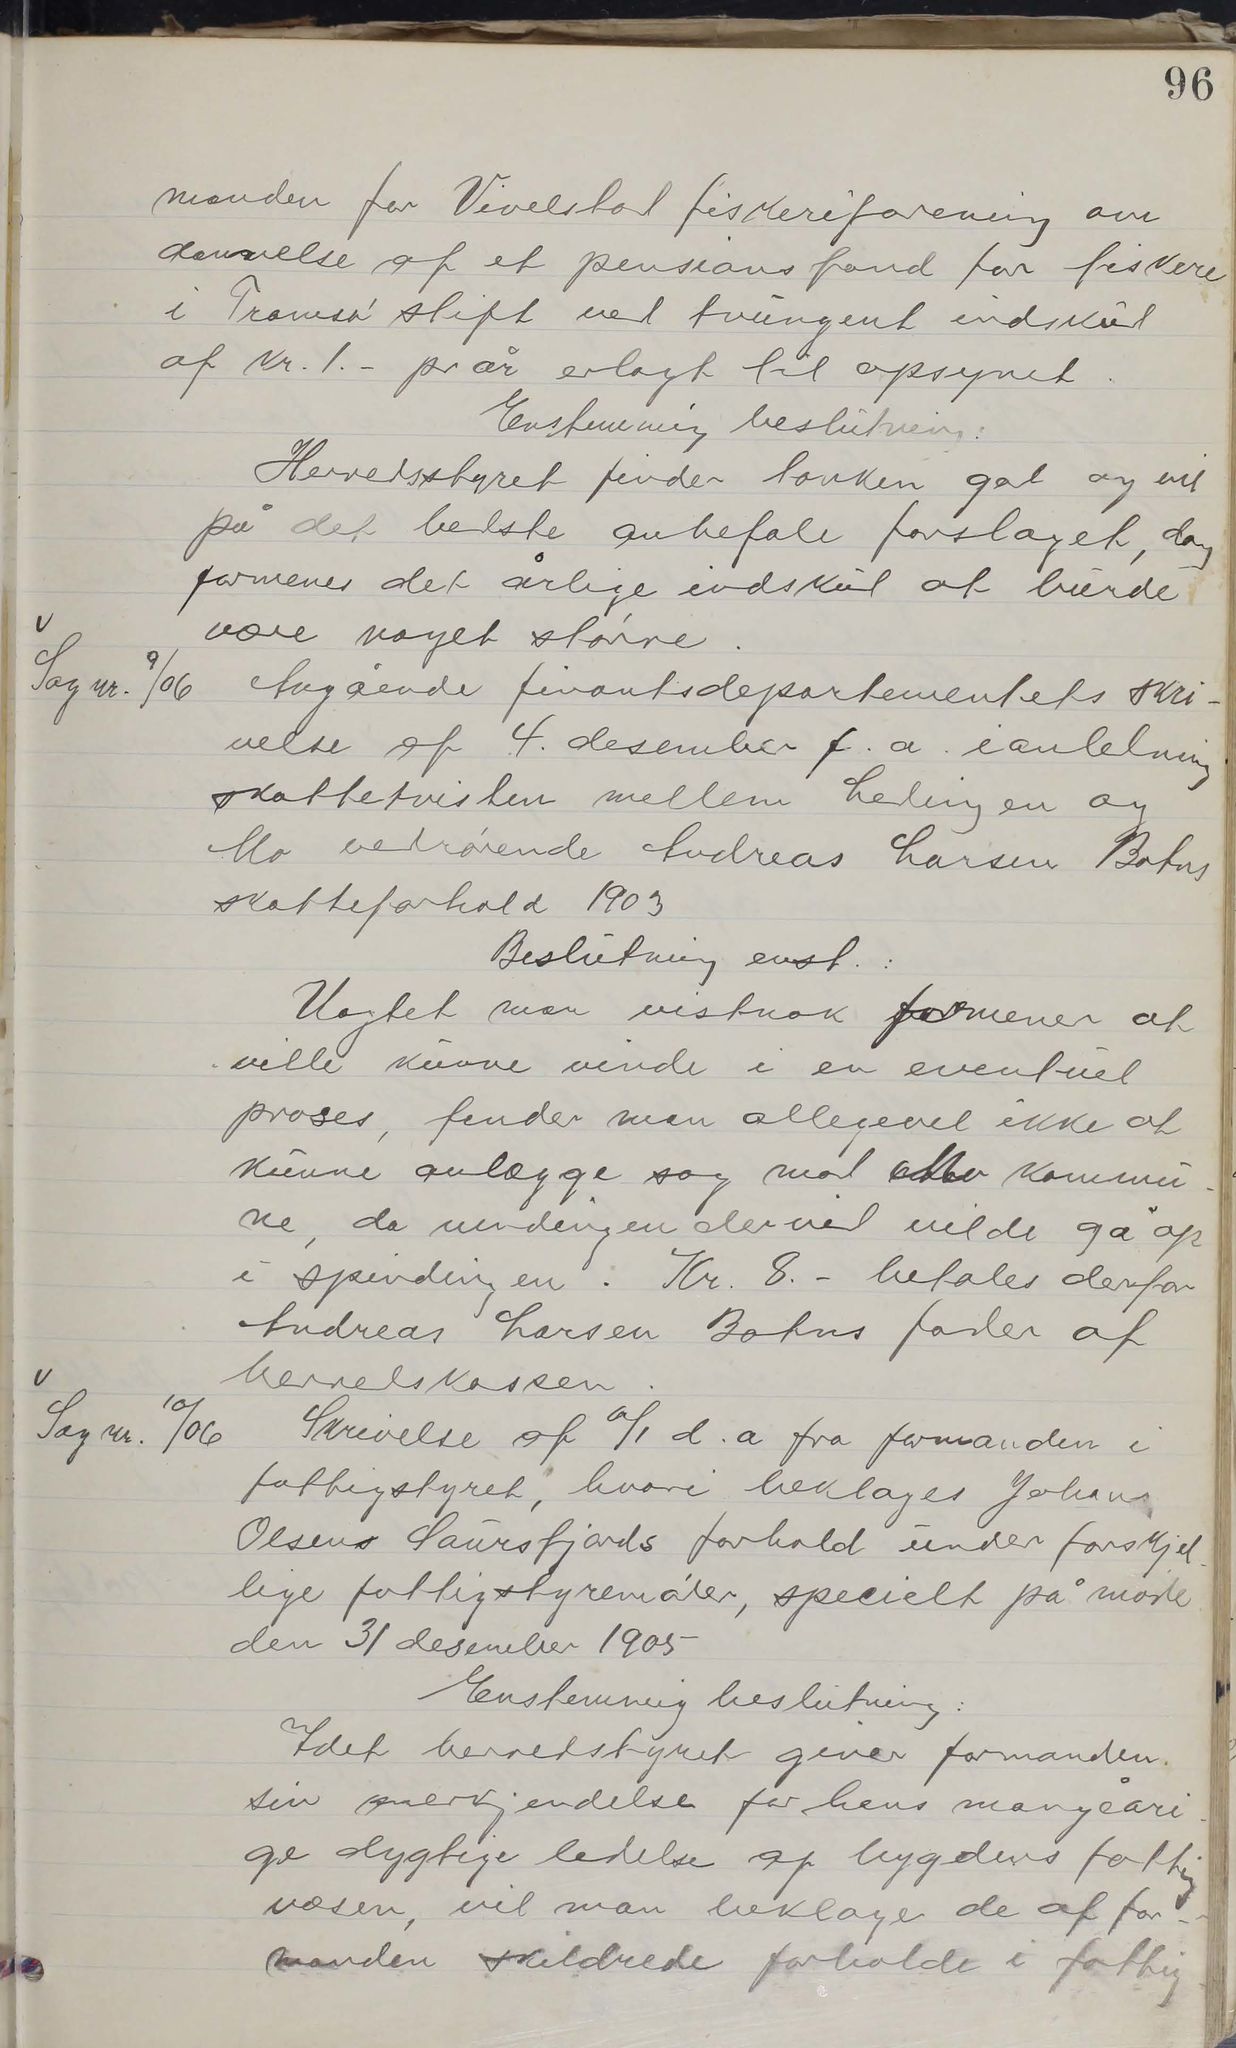 96
manden for Vivelstad fiskeriforening om
dannelse af et pensionsfond for fiskere
i Tromsö stift ved tvungent indskud
af kr. 1.- pr år erlagt til opsynet.
Enstemmig beslutning:
Herredsstyret finder tanken god og vil
på det bedste anbefale forslaget, dog
formenes det årlige indskud at burde
være noget större.
v
Sag nr. 9/06 Angående finantsdepartementets skri-
velse af 4. desember f. a. i anledning
skattetvisten mellem Hedingen og
Mo vedrörende Andreas Larsen Botns
skatteforhold 1903
Beslutning enst.:
Uagtet man vistnok formener at
ville kunne vinde i en eventuel
proses, finder man allegevel ikke at
kunne anlægge sag mod Mo kommu-
ne, da vindingen derved vilde gå op
i spindingen. Kr. 8.- betales derfor
Andreas Larsen Botns fader af
herredskassen.
v
Sag nr. 10/06 Skrivelse af /1 d.a fra formanden i
fattigstyret, hvori beklages Johan
Olsens Saursfjords forhold under forskjel-
lige fattigstyremöder, specielt på möde
den 31 desember 1905
Enstemmig beslutning:
Idet herredstyret giver formanden
sin anerkjendelse for hans mangeåri-
ge dygtige ledelse af bygdens fattig
væsen, vil man beklage de af for-
manden skildrede forholde i fattig-